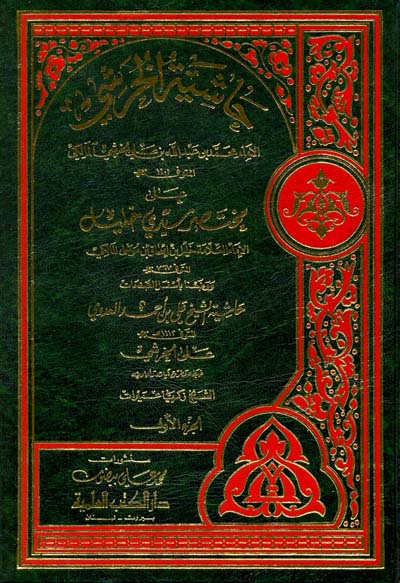 حاشية الخرشي
الإمام محمد بن عبد الله بن علي الخرشي المالكي
المتوفى سنة
على
مختصر سيدي خليل
الإمام العلامة خليل بن إسحاق بن موسى المالكي
المتوفى سنة
وبهامشها بأسفل الصفحات
حاشية الشيخ علي بن أحمد العدوي
المتوفى سنة ١١١٢
على الخرشي
الشيخ زكريا عميرات
الجزء الأول
منشورات
محمد علي بيضون
دار الكتب العلمية
بيروت - لبنان